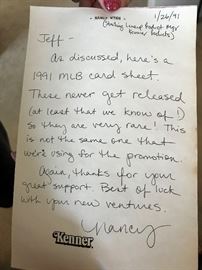 NANCY WYNN
1/26/91
(Starting Lineup Product Mgr
Kenner Products)
Jeff -
As discussed, here's a
1991 MLB card sheet.
These never get released
(at least that we know of!)
So they are very rare! This
is not the same one that
we're using for the promotion.
Again, thanks for your
great support. Best of luck
with your new ventures.
Nancy
Kenner